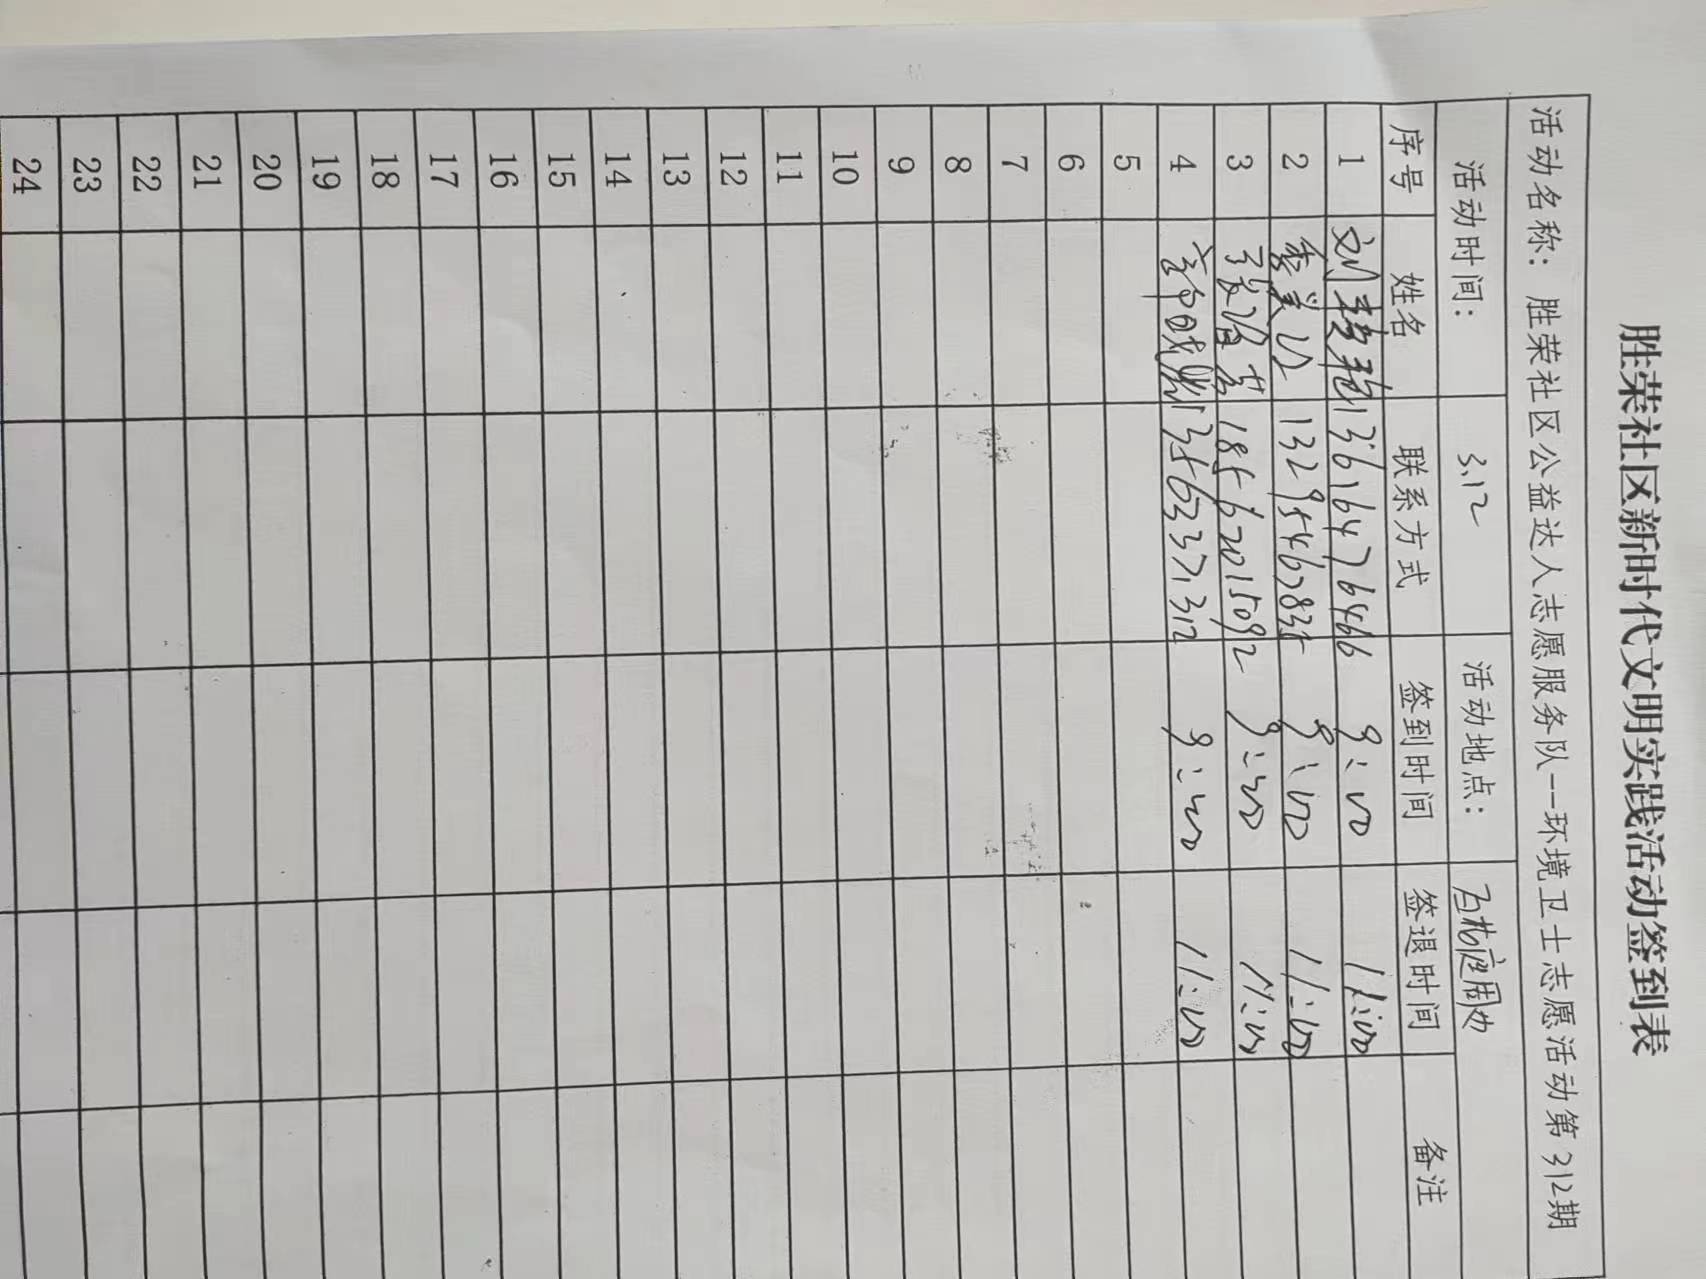 胜荣社区新时代文明实践活动签到表
活动名称： 胜荣社区公益达人志愿服务队--环境卫士志愿活动第312期
活动时间： 3.12 活动地点： 周边
序号 姓名 联系方式 签到时间 签退时间 备注
1 刘 13616476466 9:00 11:00
2 13295467835 9:00 11:00
3 张 18562015092 9:00 11:00
4 13563371312 9:00 11:00
5
6
7
8
9
10
11
12
13
14
15
16
17
18
19
20
21
22
23
24